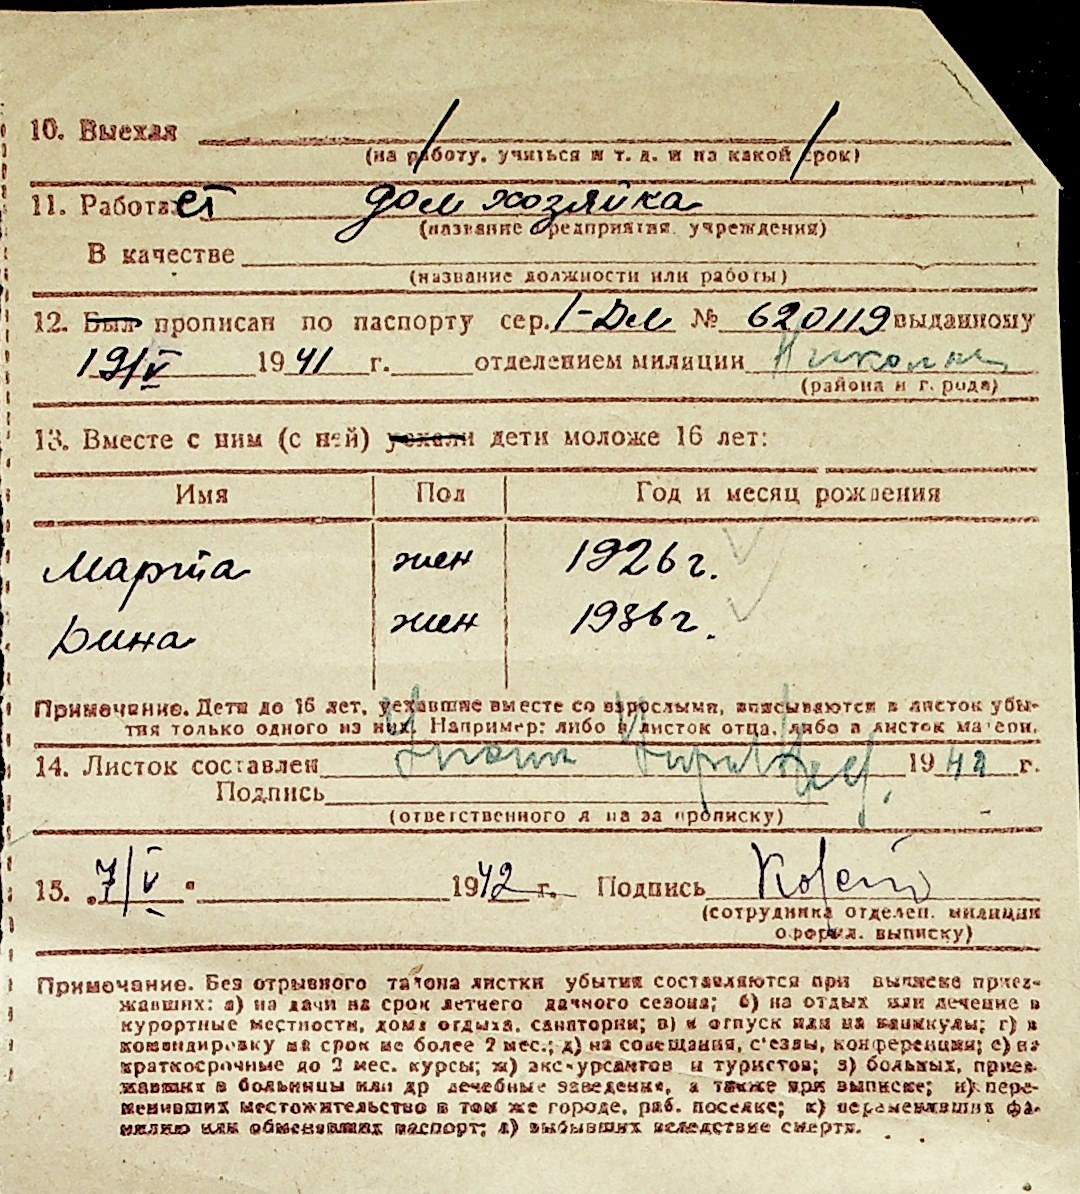 10. Выехал
(на работу, учиться и т. д. и на какой срок)
11. Работает дом хозяйка
(название предприятия, учреждения)
В качестве
(название должности или работы)
12. Был прописан по паспорту сер. I-ДМ № 620119 выданному
19/V 1941 г. отделением милиции
(района и города)
13. Вместе с ним (с ней) уехали дети моложе 16 лет:
Имя Пол Год и месяц рождения
Марта жен 1926 г.
Дина жен 1936 г.
Примечание. Дети до 16 лет, уехавшие вместе со взрослыми, вписываются в листок убы-
тия только одного из них. Например: либо в листок отца, либо в листок матери.
14. Листок составлен 1942 г.
Подпись
(ответственного л на за прописку)
15. „7/V" 1942 г. Подпись
(сотрудника отделен. милиции
оформл. выписку)
Примечание. Без отрывного талона листки убытия составляются при выписке приез-
жавших: а) на дачи на срок летнего дачного сезона; б) на отдых или лечение в
курортные местности, дома отдыха, санатории; в) в отпуск или на каникулы; г) в
командировку на срок не более 2 мес.; д) на совещания, с'езды, конференции; е) на
краткосрочные до 2 мес. курсы; ж) экскурсантов и туристов; з) больных, приез-
жавших в больницы или др лечебные заведения, а также при выписке; и) пере-
менивших местожительство в том же городе, раб. поселке; к) переменивших фа-
милию или обменявших паспорт; л) выбывших вследствие смерти.